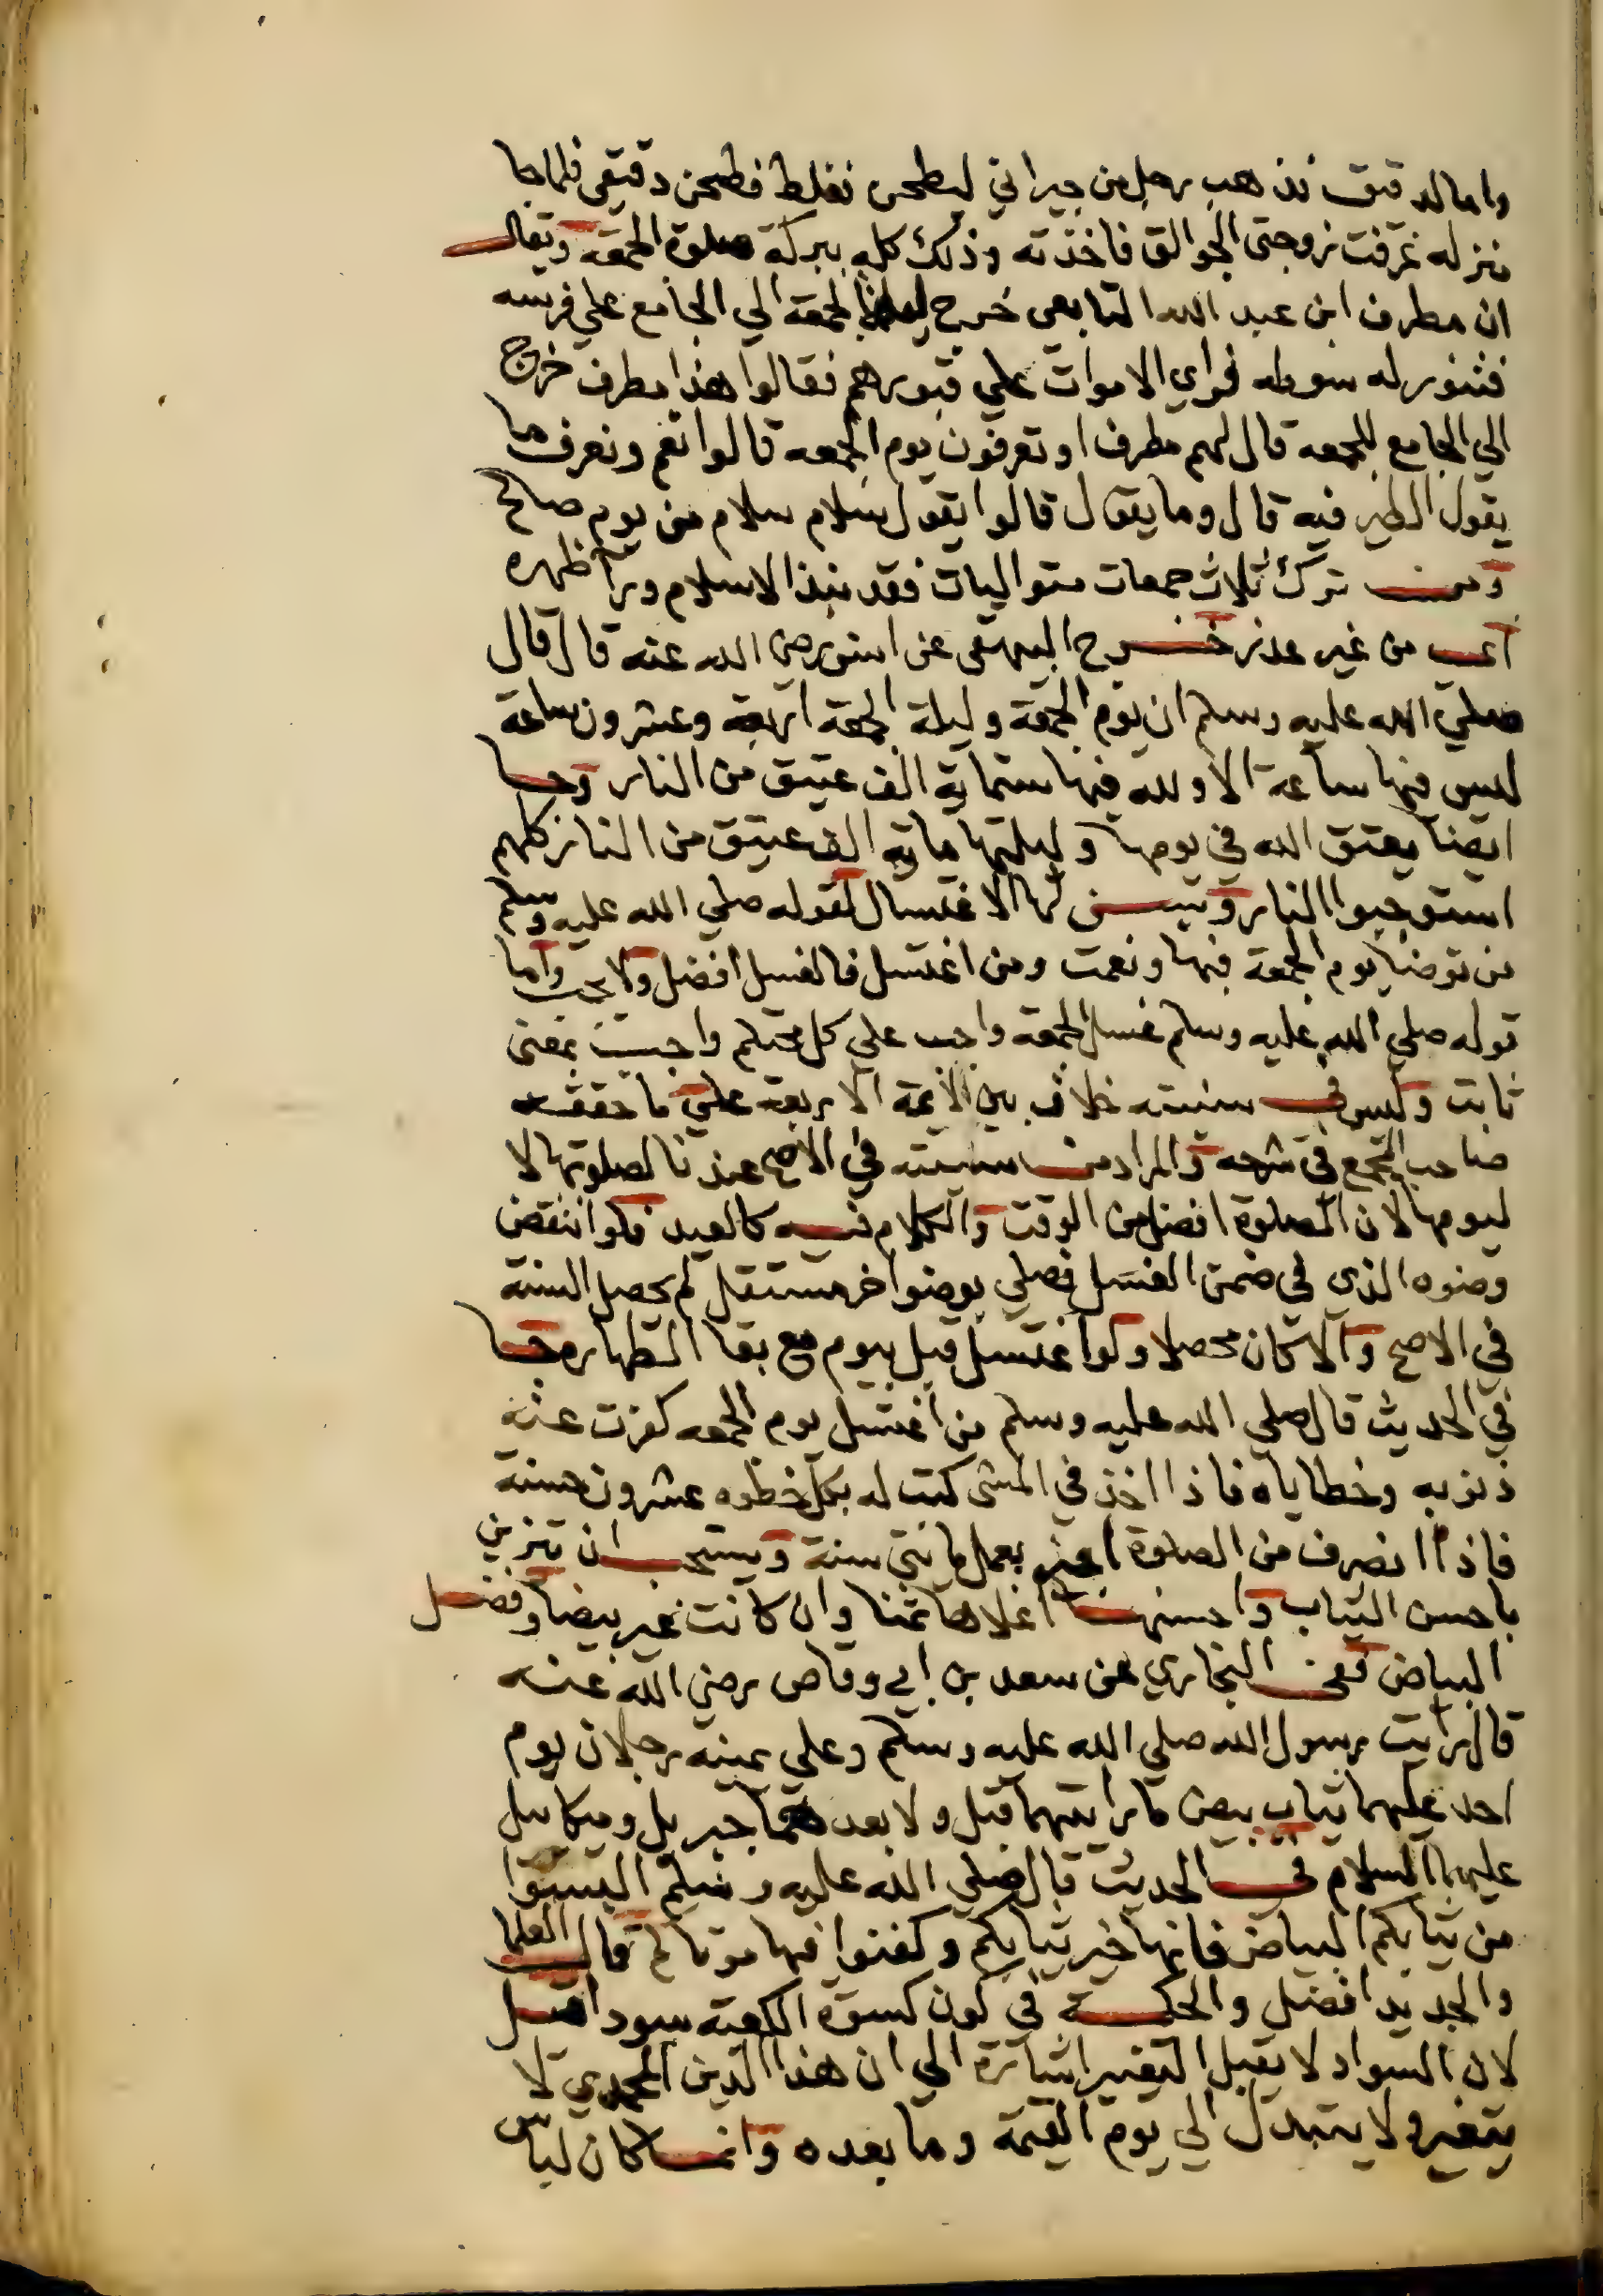 واما الدقيق فذهب رجل من جيراني ليطحن فغلط فطحن دقيقي فلما جا
منزله عرفت زوجتي الجوالق فاخذته وذلك كله ببركة صلوة الجمعة ويقال
ان مطرف ابن عبد الله التابعي خرج الجمعة الي الجامع علي فرسه
فنور له سوطه فراي الاموات علي قبورهم فقالوا هذا مطرف خرج
الي الجامع للجمعه قال لهم مطرف او تعرفون يوم الجمعه قالوا نعم ونعرف ما
يقول الطير فيه قال وما يقول قالوا يقول سلام سلام من يوم صالح
ومن ترك ثلاث جمعات متواليات فقد نبذ الاسلام ورآ ظهره
اي من غير عذر خرج البيهقي عن انس رضي الله عنه قال قال
صلي الله عليه وسلم ان يوم الجمعة وليلة الجمعة اربعة وعشرون ساعة
ليس فيها ساعة الا ولله فيها ستماية الف عتيق من النار وجا
ايضا يعتق الله في يومها وليلتها ماية الف عتيق من النار كلهم
استوجبوا النار ويسن لها الاغتسال لقوله صلي الله عليه وسلم
من توضا يوم الجمعة فبها ونعمت ومن اغتسل فالغسل افضل ولا يجب واما
قوله صلي الله عليه وسلم غسل الجمعة واجب علي كل محتلم واجب بمعني
ثابت وليس في سنيته خلاف بين الايمة الاربعة علي ما حققه
صاحب المجمع في شرحه والمراد من سنيته في الاصح عندنا لصلوتها لا
ليومها لان الصلوة افضل من الوقت والكلام فيه كالعيد فلو انتقض
وضوه الذي في ضمن الغسل فصلي بوضوا خر مستقل لم يحصل السنة
في الاصح والا كان محصلا ولو اغتسل قبل بيوم مع بقا الطهارة وجا
في الحديث قال صلي الله عليه وسلم من اغتسل يوم الجمعه كفرت عنه
ذنوبه وخطاياه فاذا اخذ في المشي كتب له بكل خطوه عشرون حسنة
فاذا انصرف من الصلوة اجيز بعمل مايتي سنة ويستحب ان يتزين
باحسن الثياب واحسنها اغلاها ثمنا وان كانت غير بيضا وفضل
البياض فعن البخاري عن سعد بن ابي وقاص رضي الله عنه
قال رايت رسول الله صلي الله عليه وسلم وعلي يمينه رجلان يوم
احد عليهما ثياب بيض ما رايتهما قبل ولا بعد هما جبريل وميكاييل
عليهما السلام في الحديث قال صلي الله عليه وسلم البسوا
من ثيابكم البياض فانها خير ثيابكم وكفنوا فيها موتاكم قال العلما
والجديد افضل والحكمة في كون كسوة الكعبة سودا
لان السواد لا يقبل التغير اشارة الي ان هذا الدين المحمدي لا
يتغير ولا يتبدل الي يوم القيمة وما بعده وانما كان لباس